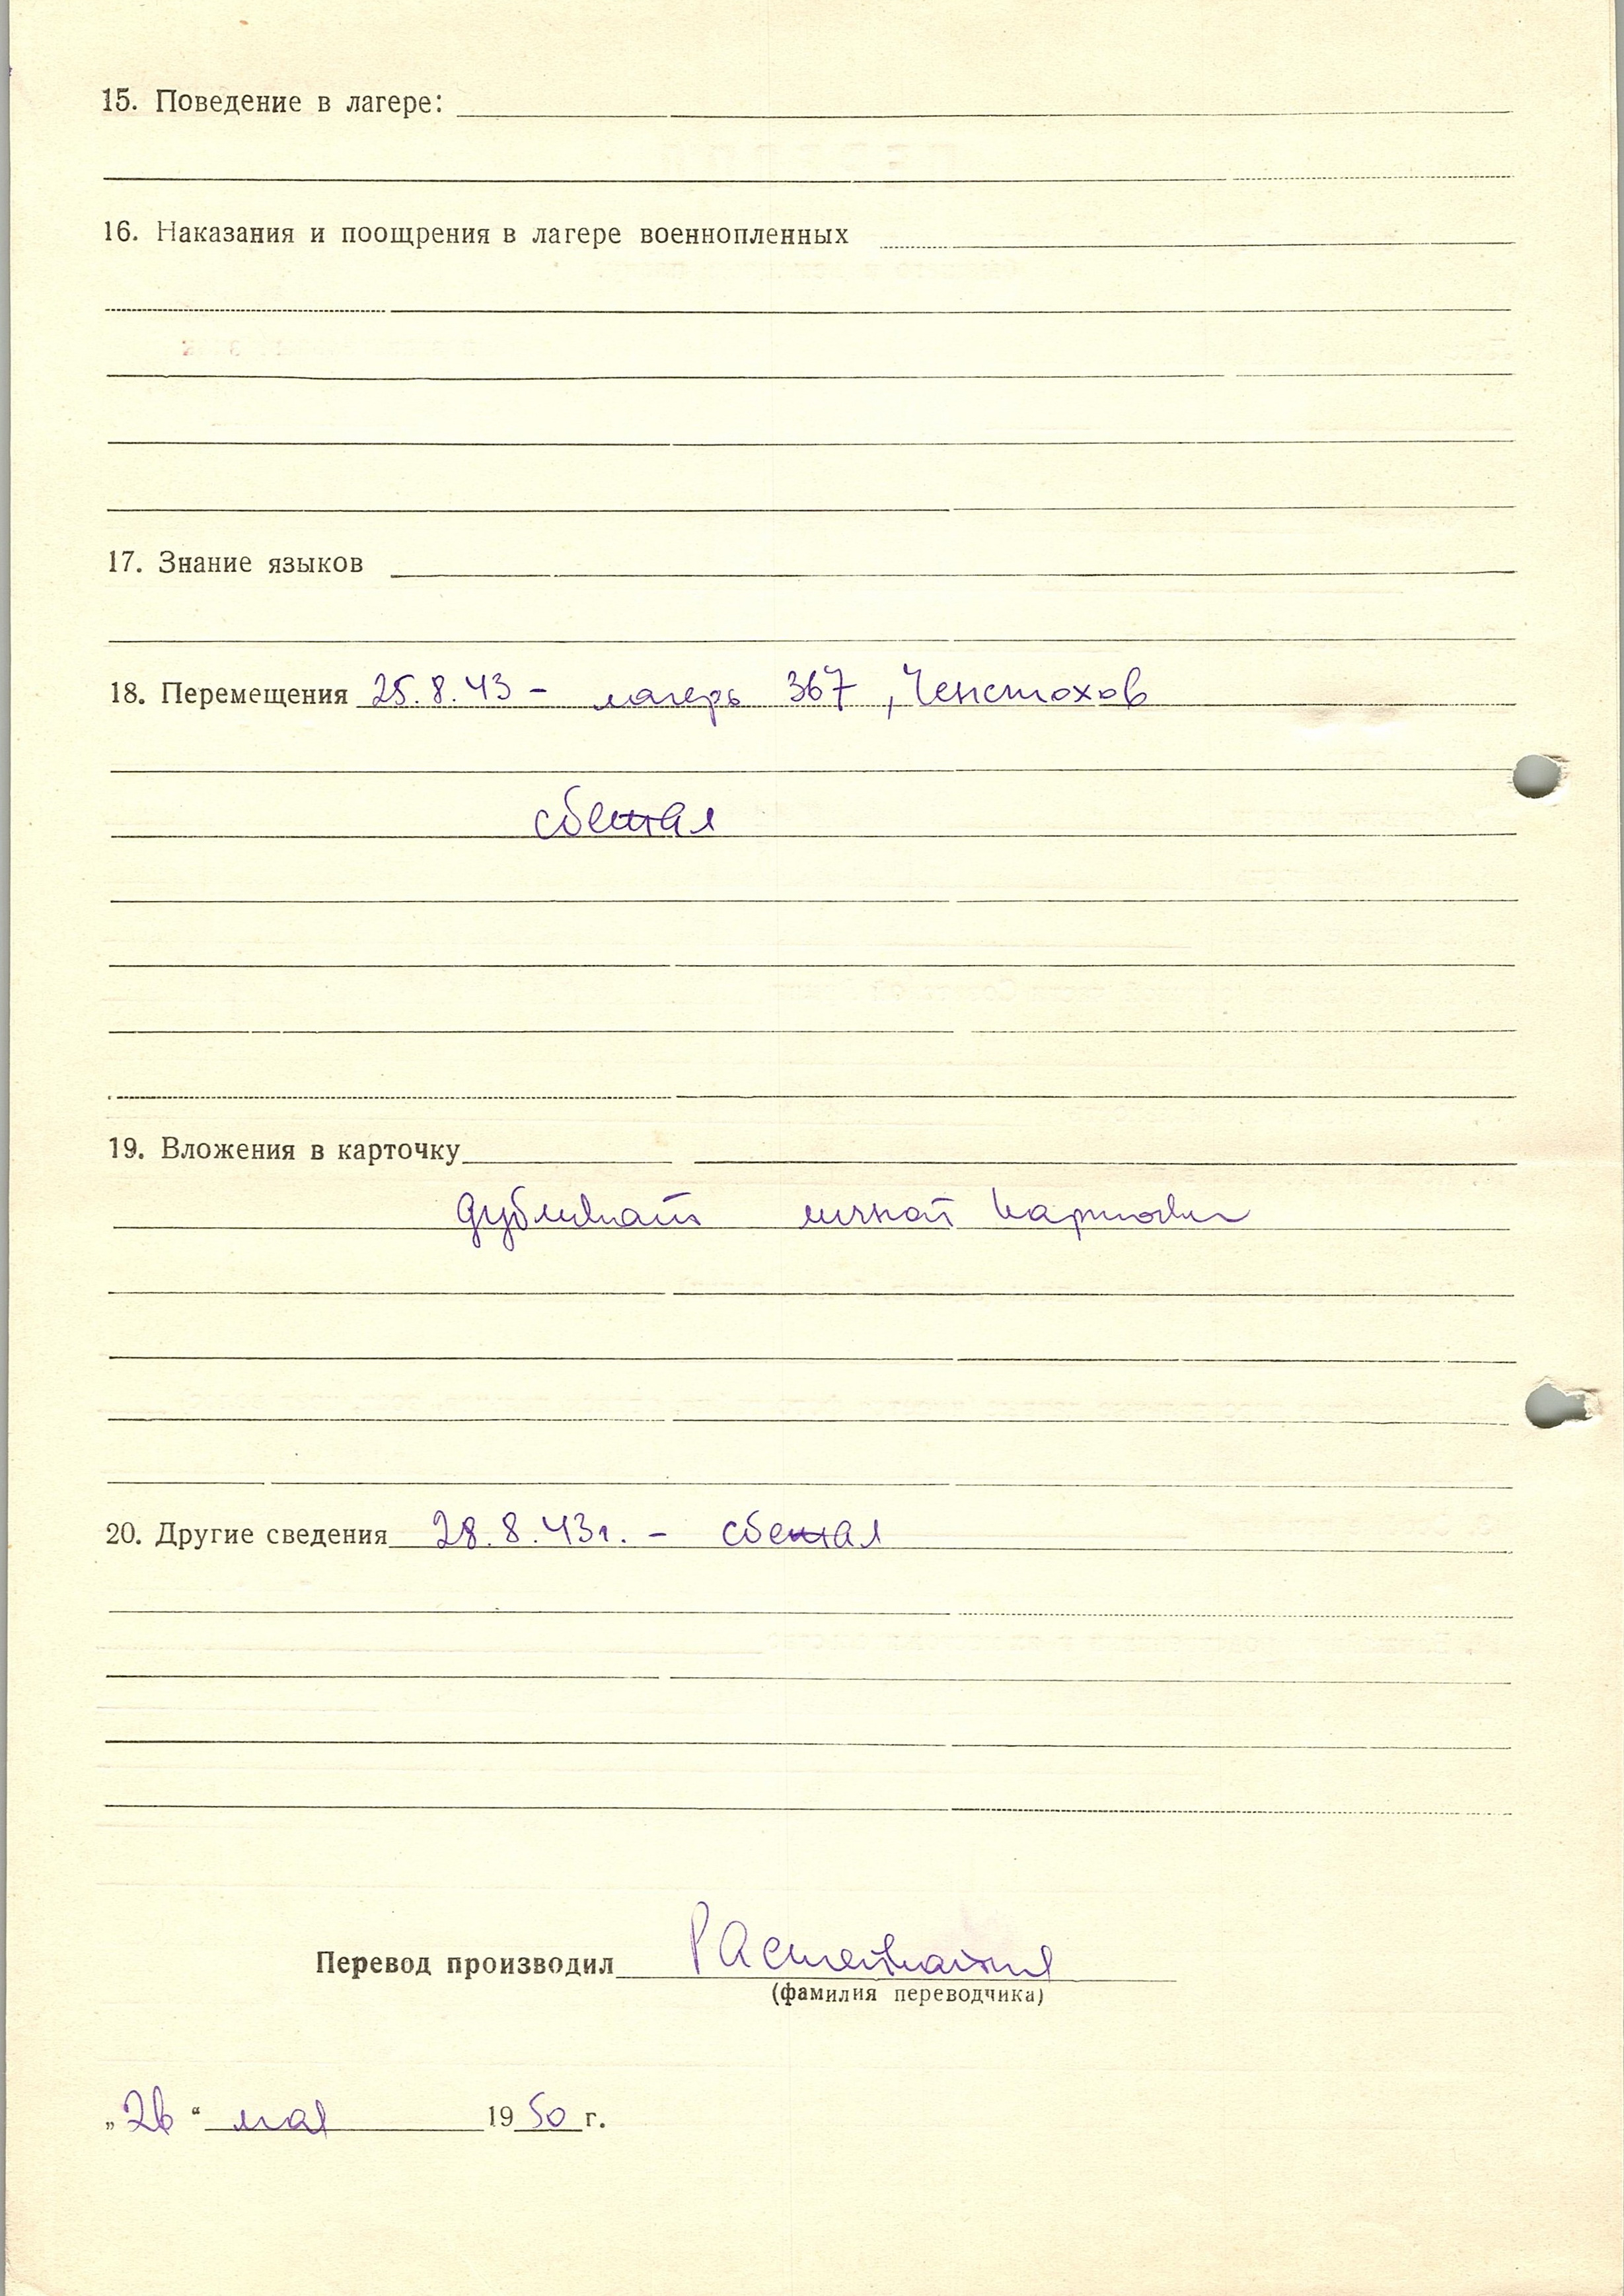 15. Поведение в лагере:
16. Наказания и поощрения в лагере военнопленных
17. Знание языков
18. Перемещения 25.8.43 - лагерь 367, Ченстохов
сбежал
19. Вложения в карточку
дубликат личной карточки
20. Другие сведения 28.8.43г. - сбежал
Перевод производил
(фамилия переводчика)
„26“ мая 1950 г.